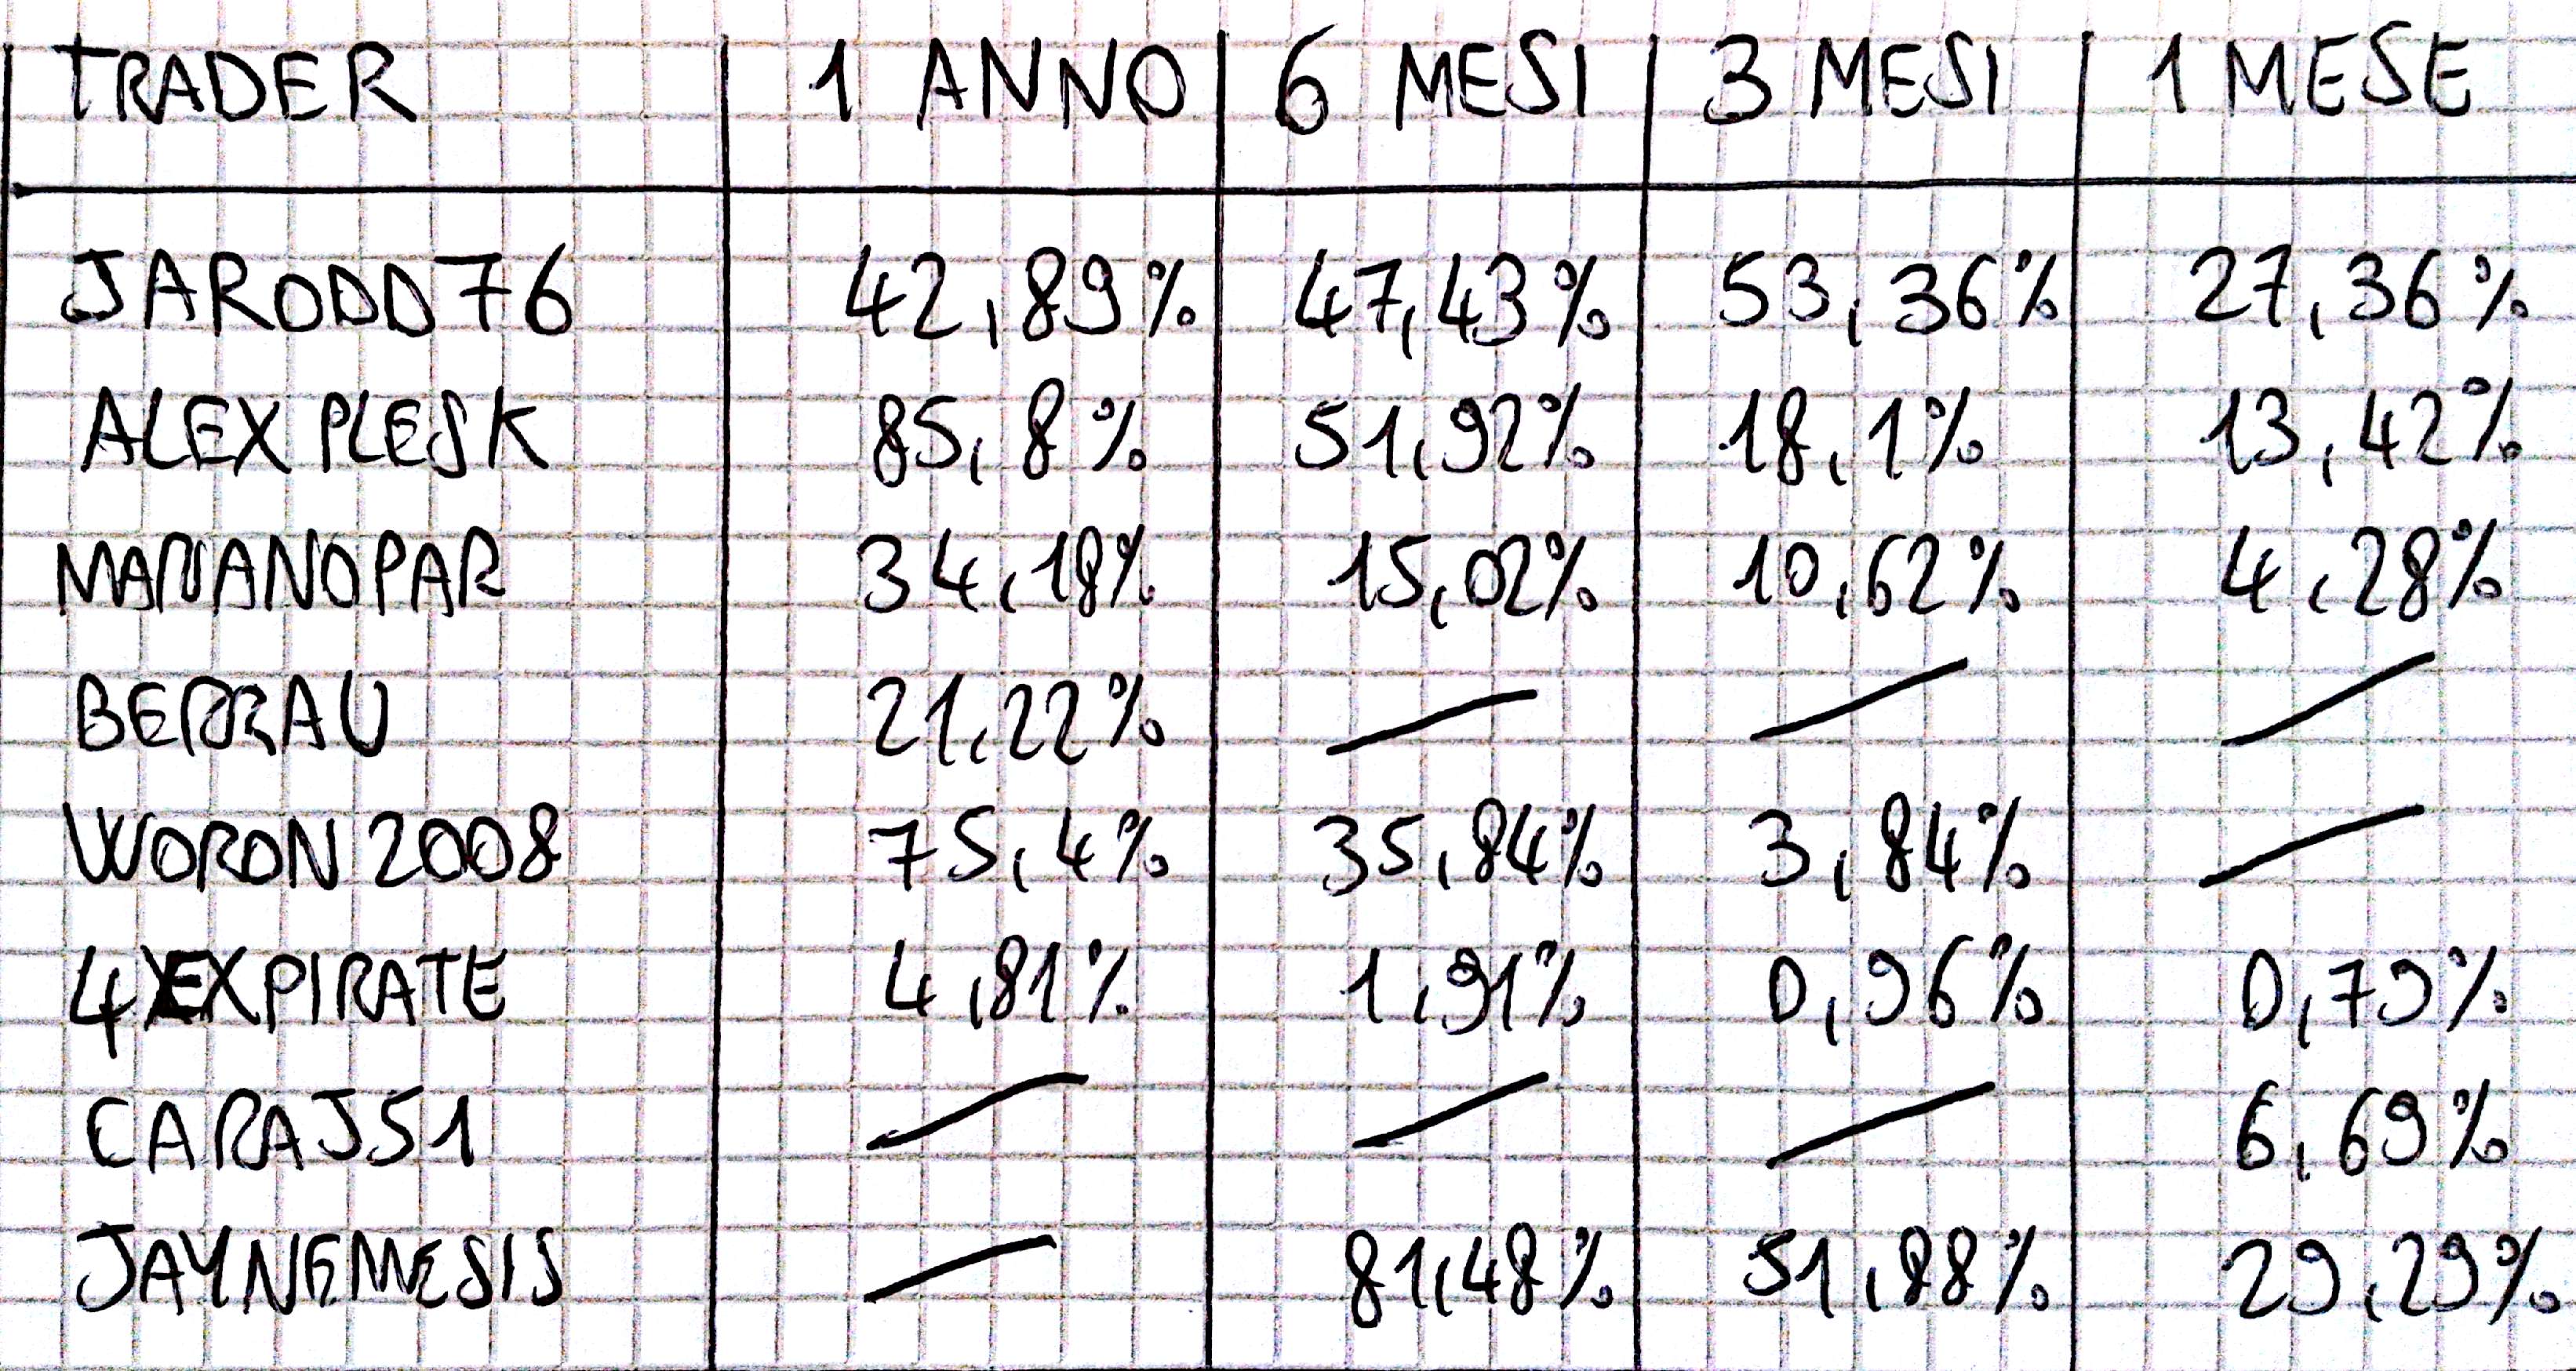 TRADER 1 ANNO 6 MESI 3 MESI 1 MESE
JARODD76 42,89% 47,43% 53,36% 27,36%
ALEXPLESK 85,8% 51,92% 18,1% 13,42%
MARIANOPAR 34,18% 15,02% 10,62% 4,28%
BERRAU 21,22% / / /
WORON2008 75,4% 35,84% 3,84% /
4XEXPIRATE 4,81% 1,91% 0,96% 0,79%
CARAJ51 / / / 6,69%
JAYNEMESIS / 81,48% 51,88% 29,29%